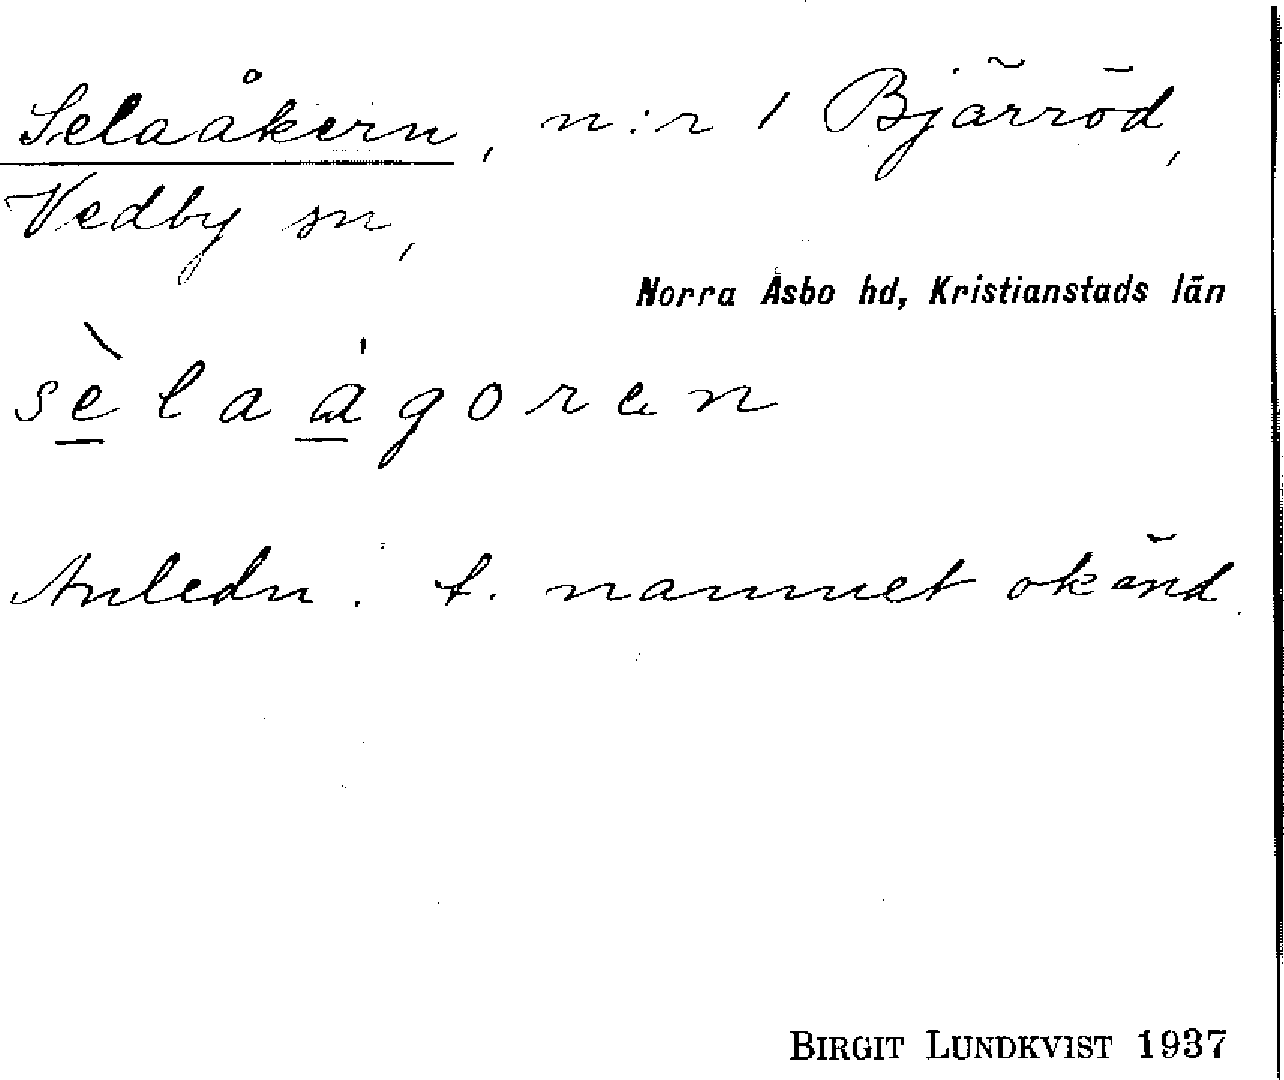 Selaåkern, n:r 1 Bjärröd,
Vedby sn,
Norra Åsbo hd, Kristianstads län
sèlaágoren
Anledn. t. namnet okänd.
BIRGIT LUNDKVIST 1937